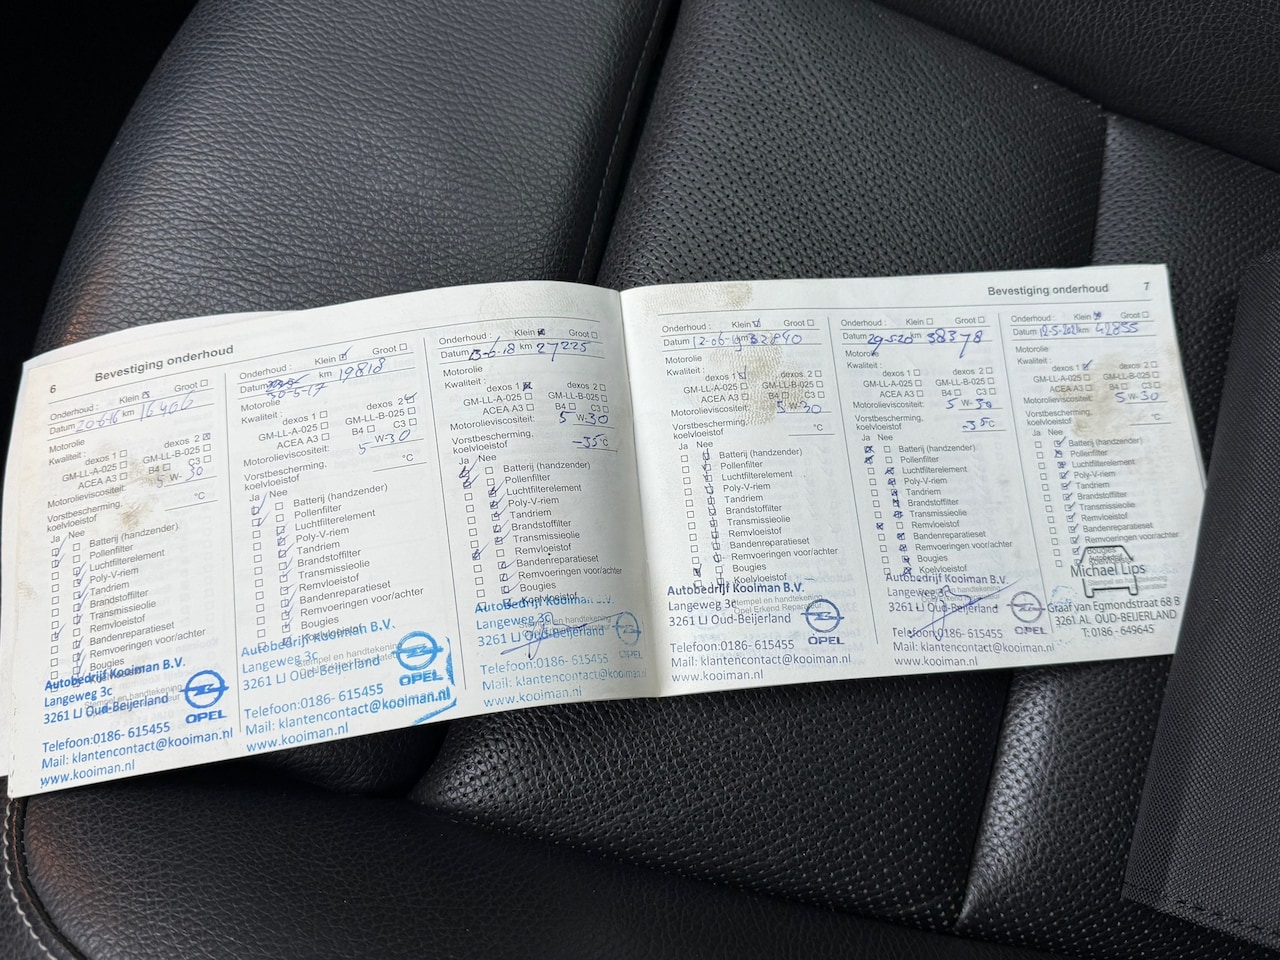 6 Bevestiging onderhoud
Onderhoud : Klein Groot
Datum 20-6-16 km 16406
Motorolie
Kwaliteit : dexos 1 dexos 2
GM-LL-A-025 GM-LL-B-025
ACEA A3 B4 C3
Motorolieviscositeit: 5 W- 30
Vorstbescherming, koelvloeistof °C
Ja Nee
Batterij (handzender)
Pollenfilter
Luchtfilterelement
Poly-V-riem
Tandriem
Brandstoffilter
Transmissieolie
Remvloeistof
Bandenreparatieset
Remvoeringen voor/achter
Bougies
Autobedrijf Kooiman B.V.
Langeweg 3c
3261 LJ Oud-Beijerland
OPEL
Telefoon:0186- 615455
Mail: klantencontact@kooiman.nl
www.kooiman.nl
Onderhoud : Klein Groot
Datum 30-5-17 km 19818
Motorolie
Kwaliteit : dexos 1 dexos 2
GM-LL-A-025 GM-LL-B-025
ACEA A3 B4 C3
Motorolieviscositeit: 5 W-30
Vorstbescherming, koelvloeistof °C
Ja Nee
Batterij (handzender)
Pollenfilter
Luchtfilterelement
Poly-V-riem
Tandriem
Brandstoffilter
Transmissieolie
Remvloeistof
Bandenreparatieset
Remvoeringen voor/achter
Bougies
Koelvloeistof
Autobedrijf Kooiman B.V.
Langeweg 3c
3261 LJ Oud-Beijerland
OPEL
Telefoon:0186- 615455
Mail: klantencontact@kooiman.nl
www.kooiman.nl
Onderhoud : Klein Groot
Datum 13-6-18 km 27225
Motorolie
Kwaliteit : dexos 1 dexos 2
GM-LL-A-025 GM-LL-B-025
ACEA A3 B4 C3
Motorolieviscositeit: 5 W-30
Vorstbescherming, koelvloeistof -35°C
Ja Nee
Batterij (handzender)
Pollenfilter
Luchtfilterelement
Poly-V-riem
Tandriem
Brandstoffilter
Transmissieolie
Remvloeistof
Bandenreparatieset
Remvoeringen voor/achter
Bougies
Koelvloeistof
Autobedrijf Kooiman B.V.
Langeweg 3c
3261 LJ Oud-Beijerland
OPEL
Telefoon:0186- 615455
Mail: klantencontact@kooiman.nl
www.kooiman.nl
Bevestiging onderhoud 7
Onderhoud : Klein Groot
Datum 12-06-19 km 32890
Motorolie
Kwaliteit : dexos 1 dexos 2
GM-LL-A-025 GM-LL-B-025
ACEA A3 B4 C3
Motorolieviscositeit: 5 W-30
Vorstbescherming, koelvloeistof °C
Ja Nee
Batterij (handzender)
Pollenfilter
Luchtfilterelement
Poly-V-riem
Tandriem
Brandstoffilter
Transmissieolie
Remvloeistof
Bandenreparatieset
Remvoeringen voor/achter
Bougies
Koelvloeistof
Autobedrijf Kooiman B.V.
Langeweg 3c
3261 LJ Oud-Beijerland
Stempel en handtekening
Opel Erkend Reparateur
OPEL
Telefoon:0186- 615455
Mail: klantencontact@kooiman.nl
www.kooiman.nl
Onderhoud : Klein Groot
Datum 29-5-20 km 38378
Motorolie
Kwaliteit : dexos 1 dexos 2
GM-LL-A-025 GM-LL-B-025
ACEA A3 B4 C3
Motorolieviscositeit: 5 W-30
Vorstbescherming, koelvloeistof -35°C
Ja Nee
Batterij (handzender)
Pollenfilter
Luchtfilterelement
Poly-V-riem
Tandriem
Brandstoffilter
Transmissieolie
Remvloeistof
Bandenreparatieset
Remvoeringen voor/achter
Bougies
Koelvloeistof
Autobedrijf Kooiman B.V.
Langeweg 3c
3261 LJ Oud-Beijerland
OPEL
Telefoon:0186- 615455
Mail: klantencontact@kooiman.nl
www.kooiman.nl
Onderhoud : Klein Groot
Datum 12-5-2021 km 42855
Motorolie
Kwaliteit : dexos 1 dexos 2
GM-LL-A-025 GM-LL-B-025
ACEA A3 B4 C3
Motorolieviscositeit: 5 W-30
Vorstbescherming, koelvloeistof °C
Ja Nee
Batterij (handzender)
Pollenfilter
Luchtfilterelement
Poly-V-riem
Tandriem
Brandstoffilter
Transmissieolie
Remvloeistof
Bandenreparatieset
Remvoeringen voor/achter
Bougies
Michael Lips
Staaf van Egmondstraat 68 B
3261 AL OUD-BEIJERLAND
T: 0186 - 649645